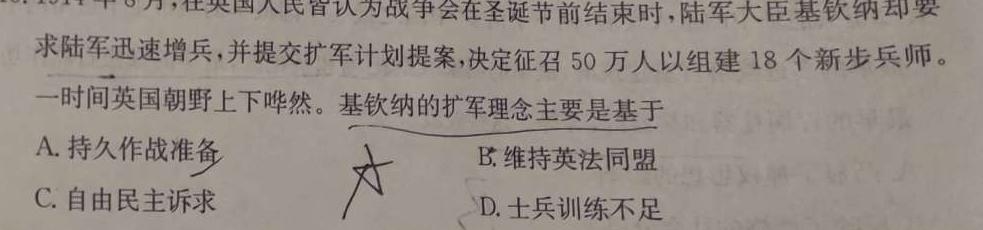 1914年8月,在英国人民皆认为战争会在圣诞节前结束时,陆军大臣基钦纳却要
求陆军迅速增兵,并提交扩军计划提案,决定征召50万人以组建18个新步兵师。
一时间英国朝野上下哗然。基钦纳的扩军理念主要是基于
A. 持久作战准备
B. 维持英法同盟
C. 自由民主诉求
D. 士兵训练不足